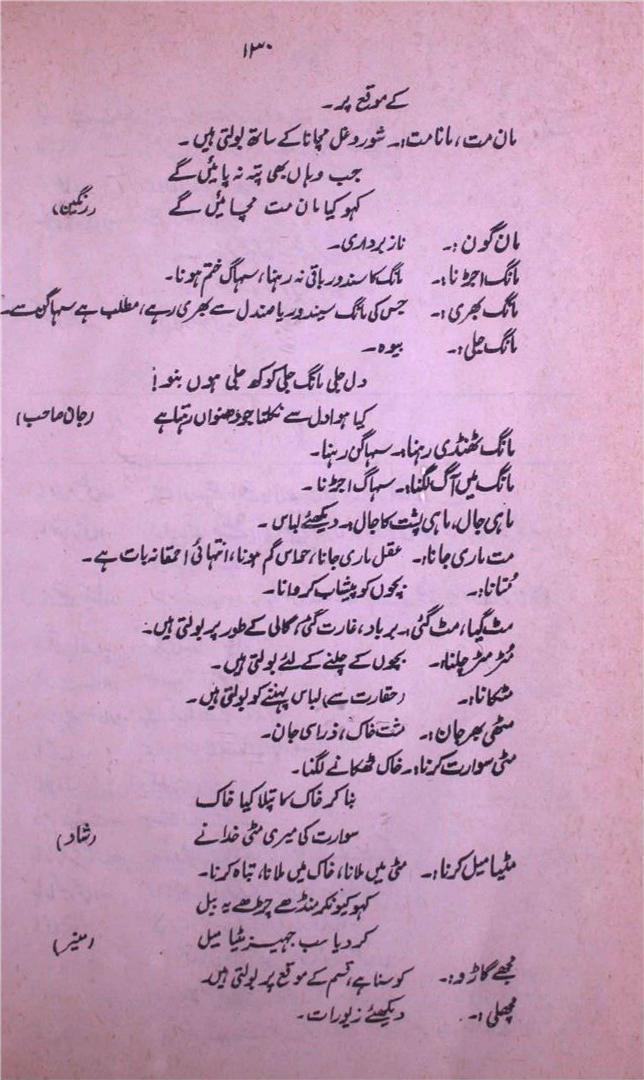 ۱۳۰
کے موقع پر۔
مان مت، مانا مت:۔ شور و غل مچانا کے ساتھ بولتی ہیں۔
جب وہاں بھی پتہ نہ پائیں گے
کہو کیا مان مت مچائیں گے (رنگین)
مان گون:۔ ناز برداری۔
مانگ اجڑنا:۔ مانگ کا سندور باقی نہ رہنا، سہاگ ختم ہونا۔
مانگ بھری:۔ جس کی مانگ سیندور یا صندل سے بھری رہے، مطلب ہے سہاگن سے۔
مانگ جلی:۔ بیوہ۔
دل جلی مانگ جلی کوکھ جلی ہوں بنو!
کیا ہوا دل سے نکلتا جو دھنواں رہتا ہے (جان صاحب)
مانگ ٹھنڈی رہنا:۔ سہاگن رہنا۔
مانگ میں آگ لگنا:۔ سہاگ اجڑنا۔
ماہی جال، ماہی پشت کا جال:۔ دیکھئے لباس۔
مت ماری جانا:۔ عقل ماری جانا، حواس گم ہونا، انتہائی احمقانہ بات ہے۔
مُتانا:۔ بچوں کو پیشاب کروانا۔
مٹ گیا، مٹ گئی:۔ برباد، غارت گئی، گالی کے طور پر بولتی ہیں۔
مُٹر مٹر چلنا:۔ بچوں کے چلنے کے لئے بولتی ہیں۔
مٹکانا:۔ (حقارت سے) لباس پہننے کو بولتی ہیں۔
مٹھی بھر جان:۔ مشت خاک، ذرا سی جان۔
مٹی سوارت کرنا:۔ خاک ٹھکانے لگنا۔
بنا کر خاک کا پتلا کیا خاک
سوارت کی میری مٹی خدا نے (شاد)
مٹیا میل کرنا:۔ مٹی میں ملانا، خاک میں ملانا، تباہ کرنا۔
کہو کیونکر منڈھے چڑھے یہ بیل
کر دیا سب جہیز مٹیا میل (منیر)
مجھے گاڑو:۔ کوسنا ہے، قسم کے موقع پر بولتی ہیں۔
مچھلی:۔ دیکھئے زیورات۔